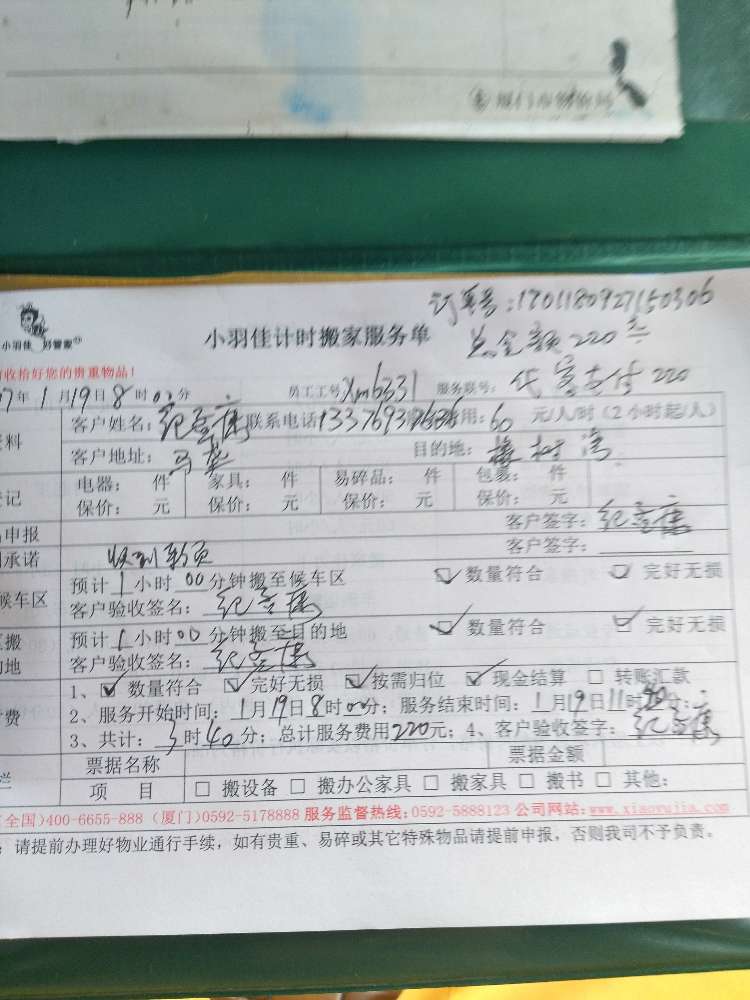 订单号:1701180927150306
小羽佳 好管家
小羽佳计时搬家服务单
总金额220元
收拾好您的贵重物品!
代客支付220
7年1月19日8时00分 员工工号Xm6331 服务联号:
资料 客户姓名: 纪 联系电话 用:60 元/人/时(2小时起/人)
客户地址:马垄 目的地:橡树湾
登记 电器: 件 家具: 件 易碎品: 件 包裹: 件
保价: 元 保价: 元 保价: 元 保价: 元
申报 客户签字:纪
承诺 客户签字:
候车区 预计1小时00分钟搬至候车区 ☑数量符合 ☑完好无损
客户验收签名:纪
搬 预计1小时00分钟搬至目的地 ☑数量符合 ☑完好无损
的地 客户验收签名:纪
1、☑数量符合 ☑完好无损 ☑按需归位 ☑现金结算 □转账汇款
费 2、服务开始时间:1月19日8时00分;服务结束时间:1月19日11时40分;
3、共计:3时40分;总计服务费用220元;4、客户验收签字:纪
票据名称 票据金额
栏 项 目 □搬设备 □搬办公家具 □搬家具 □搬书 □其他:
(全国)400-6655-888(厦门)0592-5178888 服务监督热线:0592-5888123 公司网站:www.xiaoyujia.com
:请提前办理好物业通行手续,如有贵重、易碎或其它特殊物品请提前申报,否则我司不予负责。